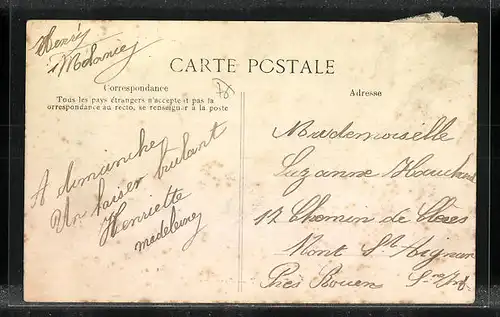 Henry
+ Melanie
CARTE POSTALE
Correspondance
Tous les pays étrangers n'acceptent pas la
correspondance au recto, se renseigner à la poste
Adresse
A dimanche
Un baiser brulant
Henriette
Madeleine
Mademoiselle
Suzanne
12 Chemin de
Mont St Aignan
Près Rouen Sne Inf